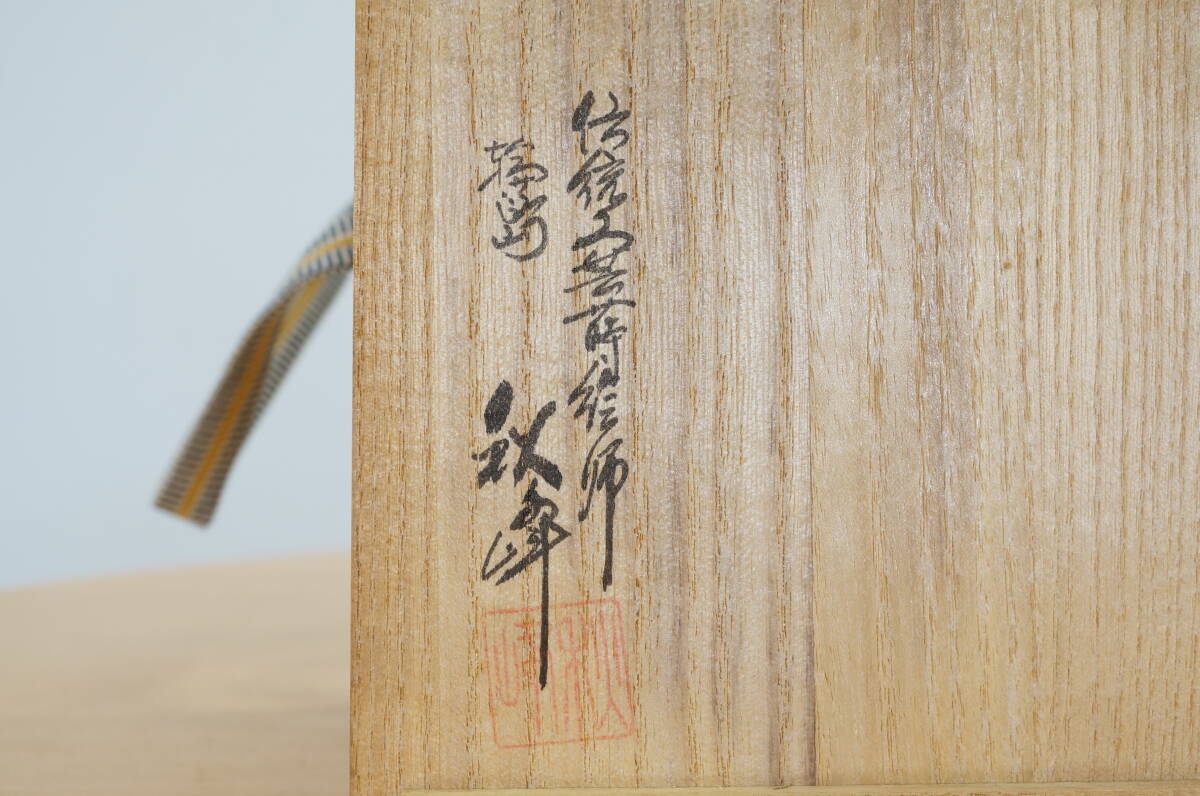 伝統工芸蒔絵師
輪島 秋峰
秋峰